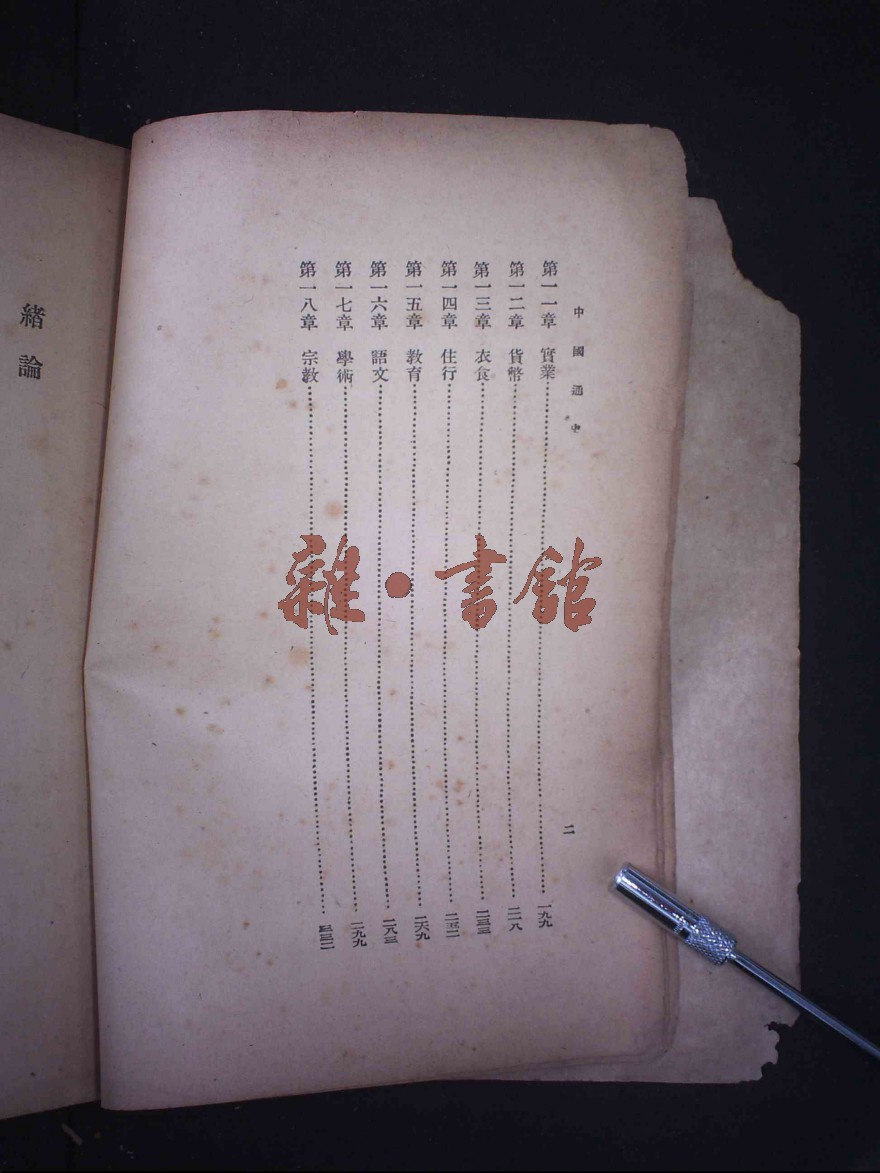 中國通史
二
第一一章　實業………一九九
第一二章　貨幣………二一八
第一三章　衣食………二三三
第一四章　住行………二五二
第一五章　教育………二六九
第一六章　語文………二八三
第一七章　學術………二九九
第一八章　宗教………三三二
緒論
雜·書館